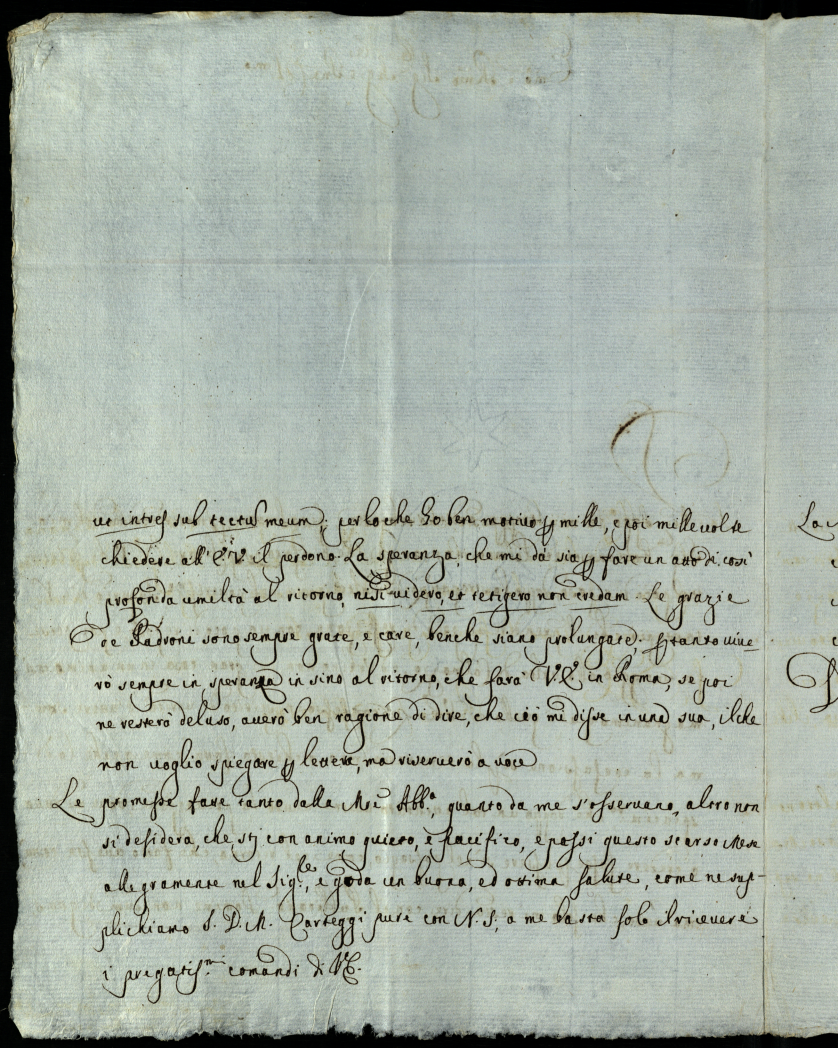 ut intres sub tectũ meum; perloche ho ben motivo ꝑ mille, e poi mille volte
chiedere all' E. V. il perdono. La speranza, che mi dà sia ꝑ fare un atto di così
profonda umiltà al ritorno, nisi videro, et tetigero non credam. Le grazie
de Padroni sono sempre grate, e care, benche siano prolungate; ꝑtanto vive=
rò sempre in speranza in sino al ritorno, che farà V. E. in Roma, se poi
ne resterò deluso, averò ben ragione di dire, che ciò mi disse in una sua, il che
non voglio spiegare ꝑ lettere, ma riserverò a voce
Le promesse fare tanto dalla Abb.a, quanto da me s'osservano, altro non
si desidera, che stij con animo quieto, e pacifico, e passi questo scarso Mese
allegramente nel e goda un buona, ed ottima salute, come ne sup-
plichiamo S. D. M. Carteggi pure con N. S., a me basta solo il ricevere
i pregatis.mi comandi di V. E.
La